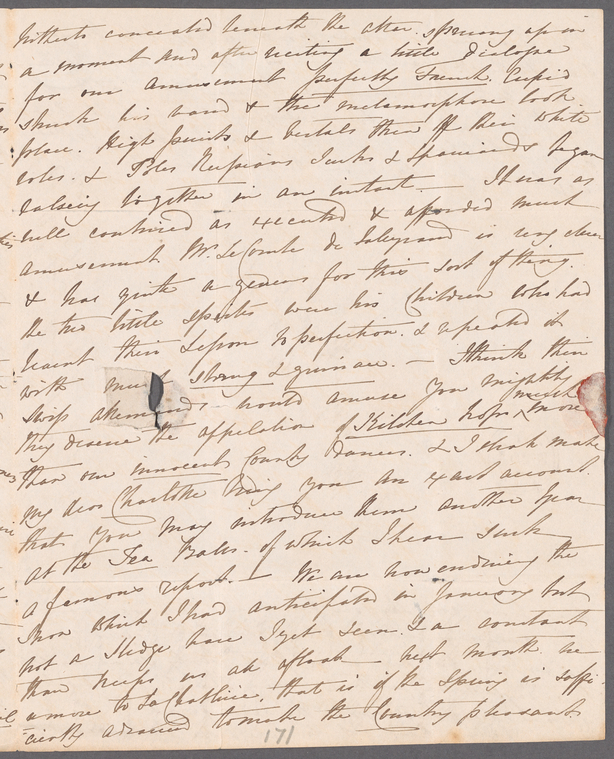 hitherto concealed beneath the altar sprung up in
a moment and after reciting a little Dialogue
for our amusement perfectly French. Cupid
shook his wand & the metamorphose took
place. High priests & Vestals threw off their white
robes. & Poles Russians Turks & Spaniards began
valsing together in an instant. — It was as
well contrived as executed & afforded much
amusement Mr. Le Comte de is very clever
& has quite a geneus for this sort of thing.
the two little sprites were his Children who had
learnt their Lesson to perfection. & repeated it
with much & grimace. — I think their
afterwards would amuse you mightily
they deserve the appelation of Kitchen hops much more
than our innocent Country Dances. & I shall make
my dear Charlotte bring you an exact account
that you may introduce them another year
at the Balls. of which I hear such
a famous report. — We are now enduring the
Thaw which I had anticipated in January but
not a Sledge have I yet seen. & a constant
thaw keeps us all afloat next month we
a move to that is if the Spring is suffi-
ciently advanced to make the Country pleasant.
171